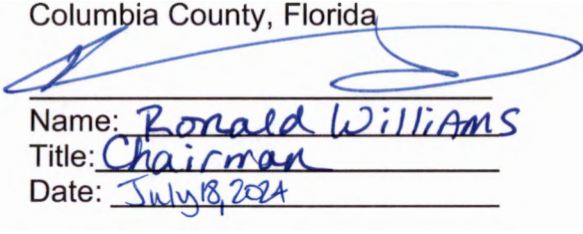 Columbia County, Florida
Name: Ronald Williams
Title: Chairman
Date: July 18, 2024